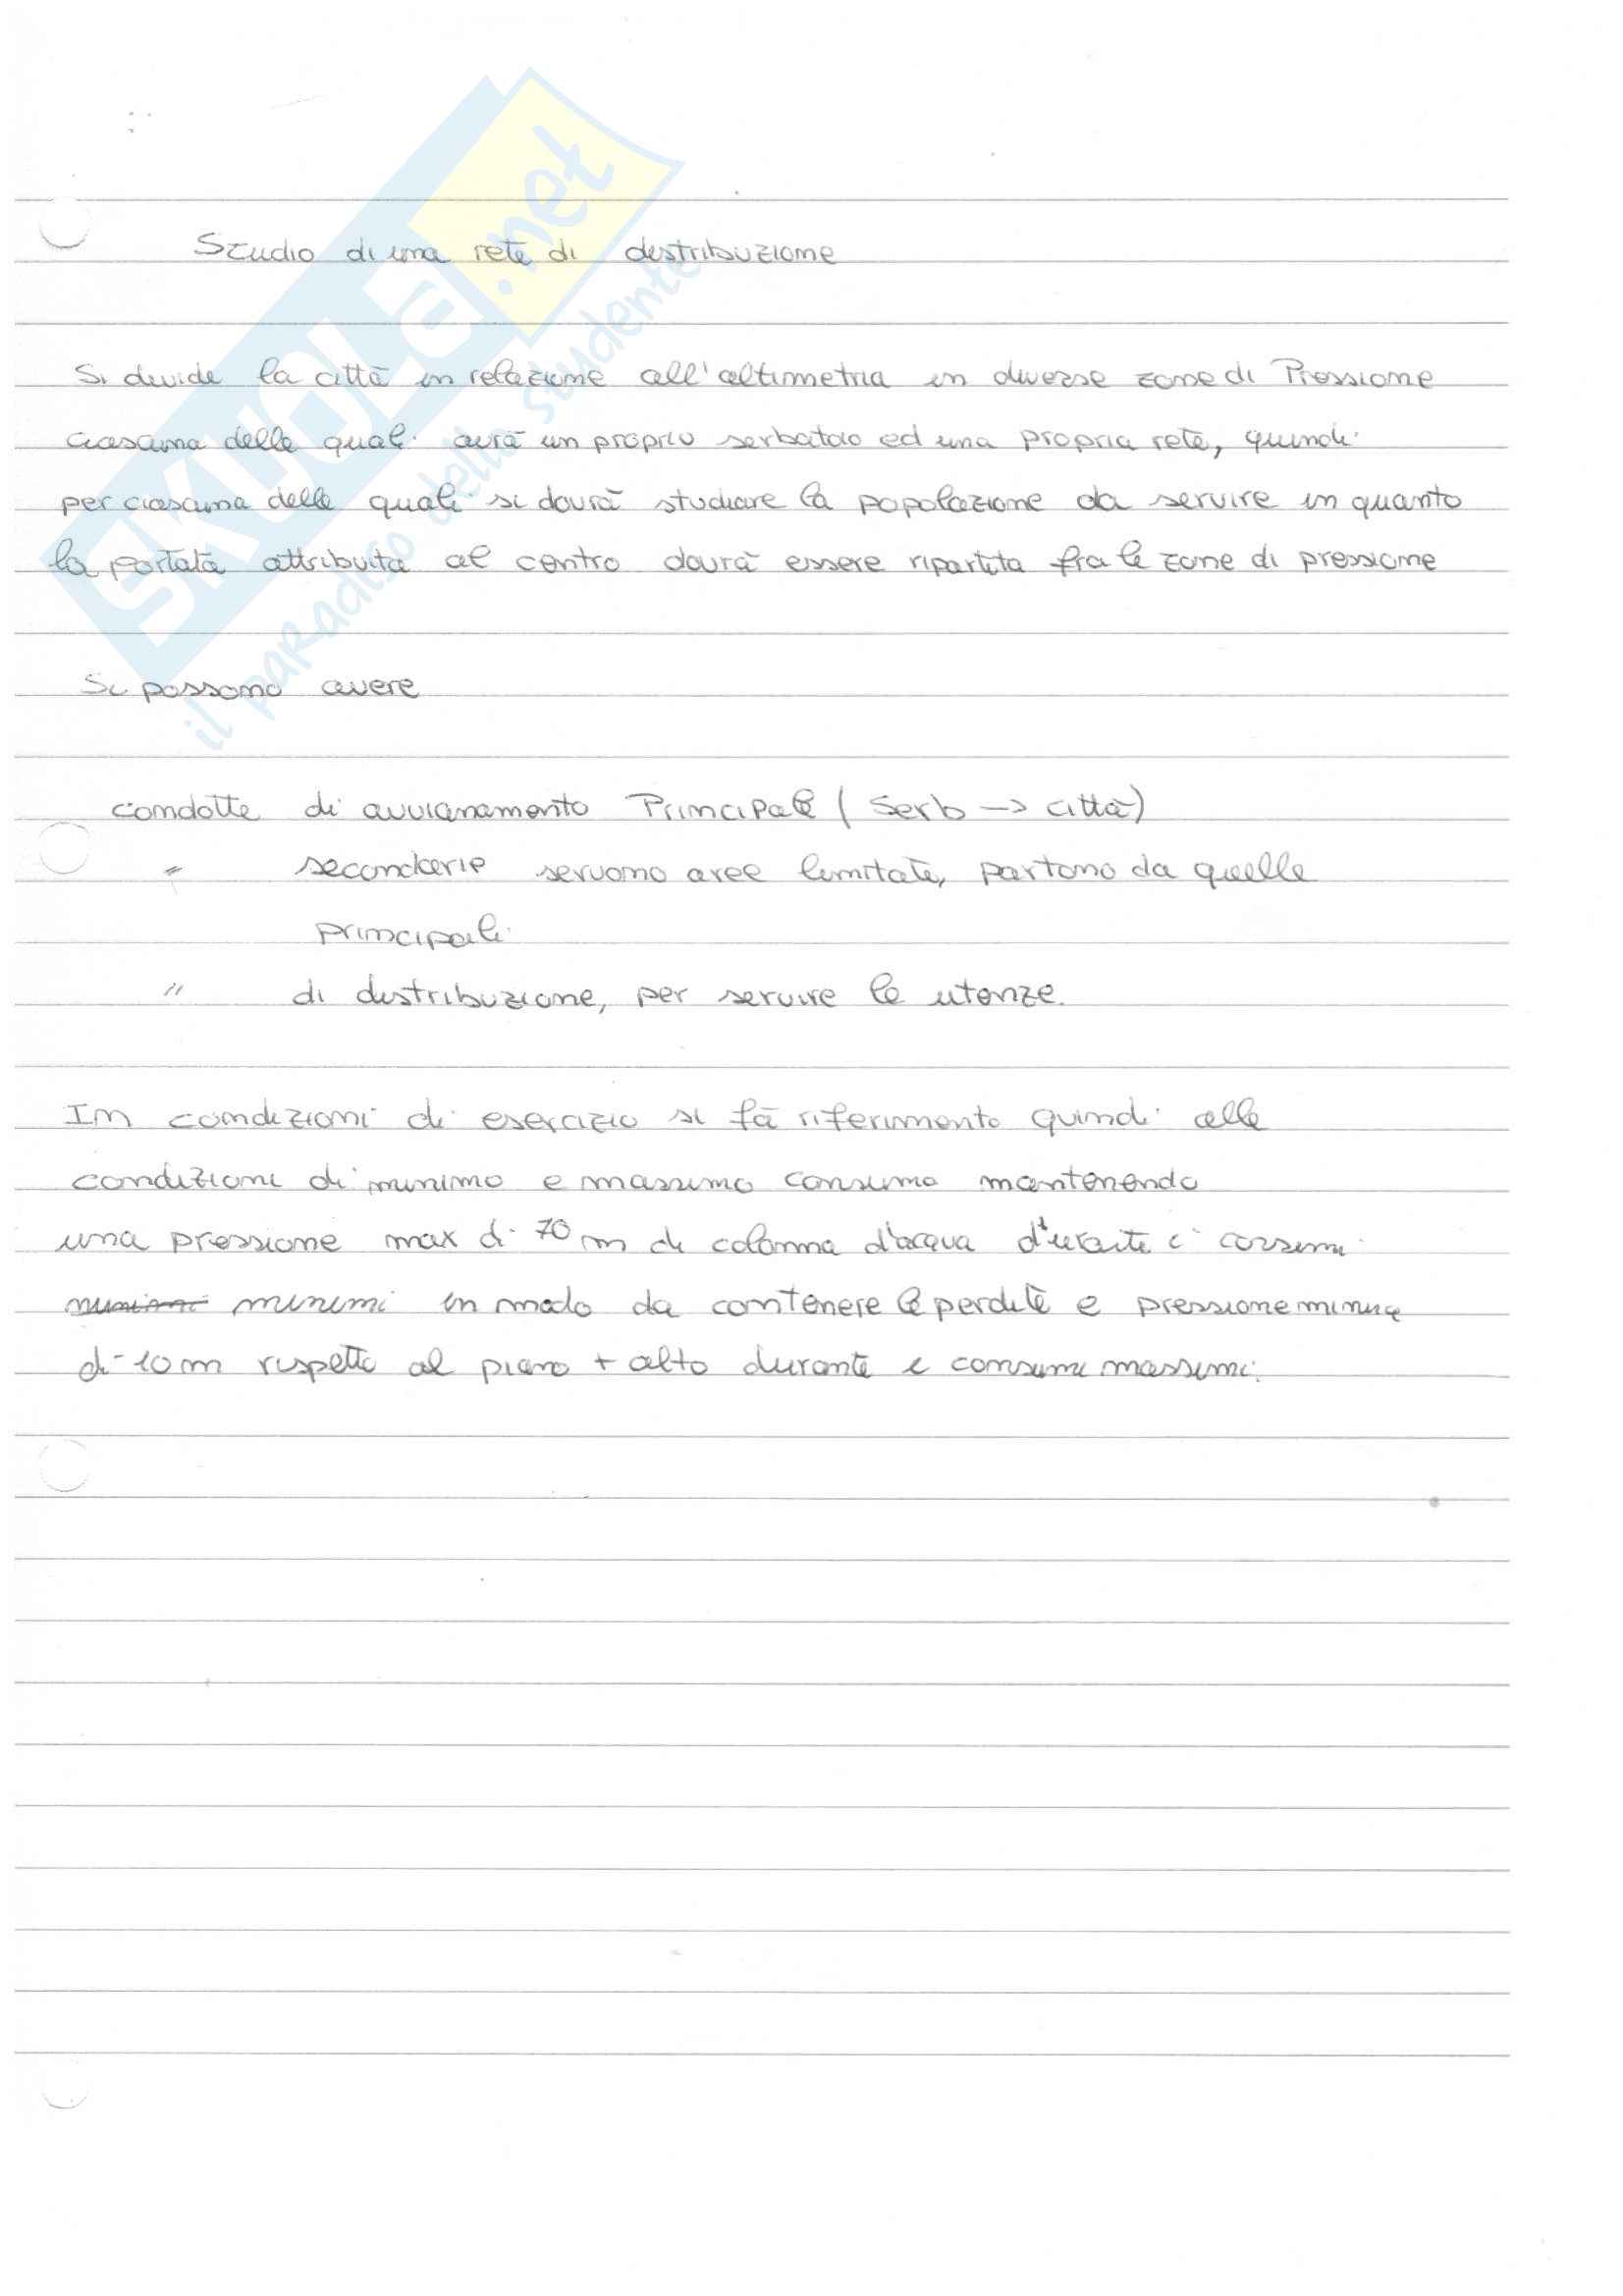 SKUOLA.net
il paradiso dello studente
Studio di una rete di distribuzione
Si divide la città in relazione all'altimetria in diverse zone di Pressione
ciascuna delle quali avrà un proprio serbatoio ed una propria rete, quindi
per ciascuna delle quali si dovrà studiare la popolazione da servire in quanto
la portata attribuita al centro dovrà essere ripartita fra le zone di pressione
Si possono avere
condotte di avvicinamento Principale ( Serb -> città)
" secondarie servono aree limitate, partono da quelle
principali
" di distribuzione, per servire le utenze.
In condizioni di esercizio si fà riferimento quindi alle
condizioni di minimo e massimo consumo mantenendo
una pressione max di 70 m di colonna d'acqua durante i
minimi in modo da contenere le perdite e pressione minima
di 10 m rispetto al piano + alto durante i consumi massimi.